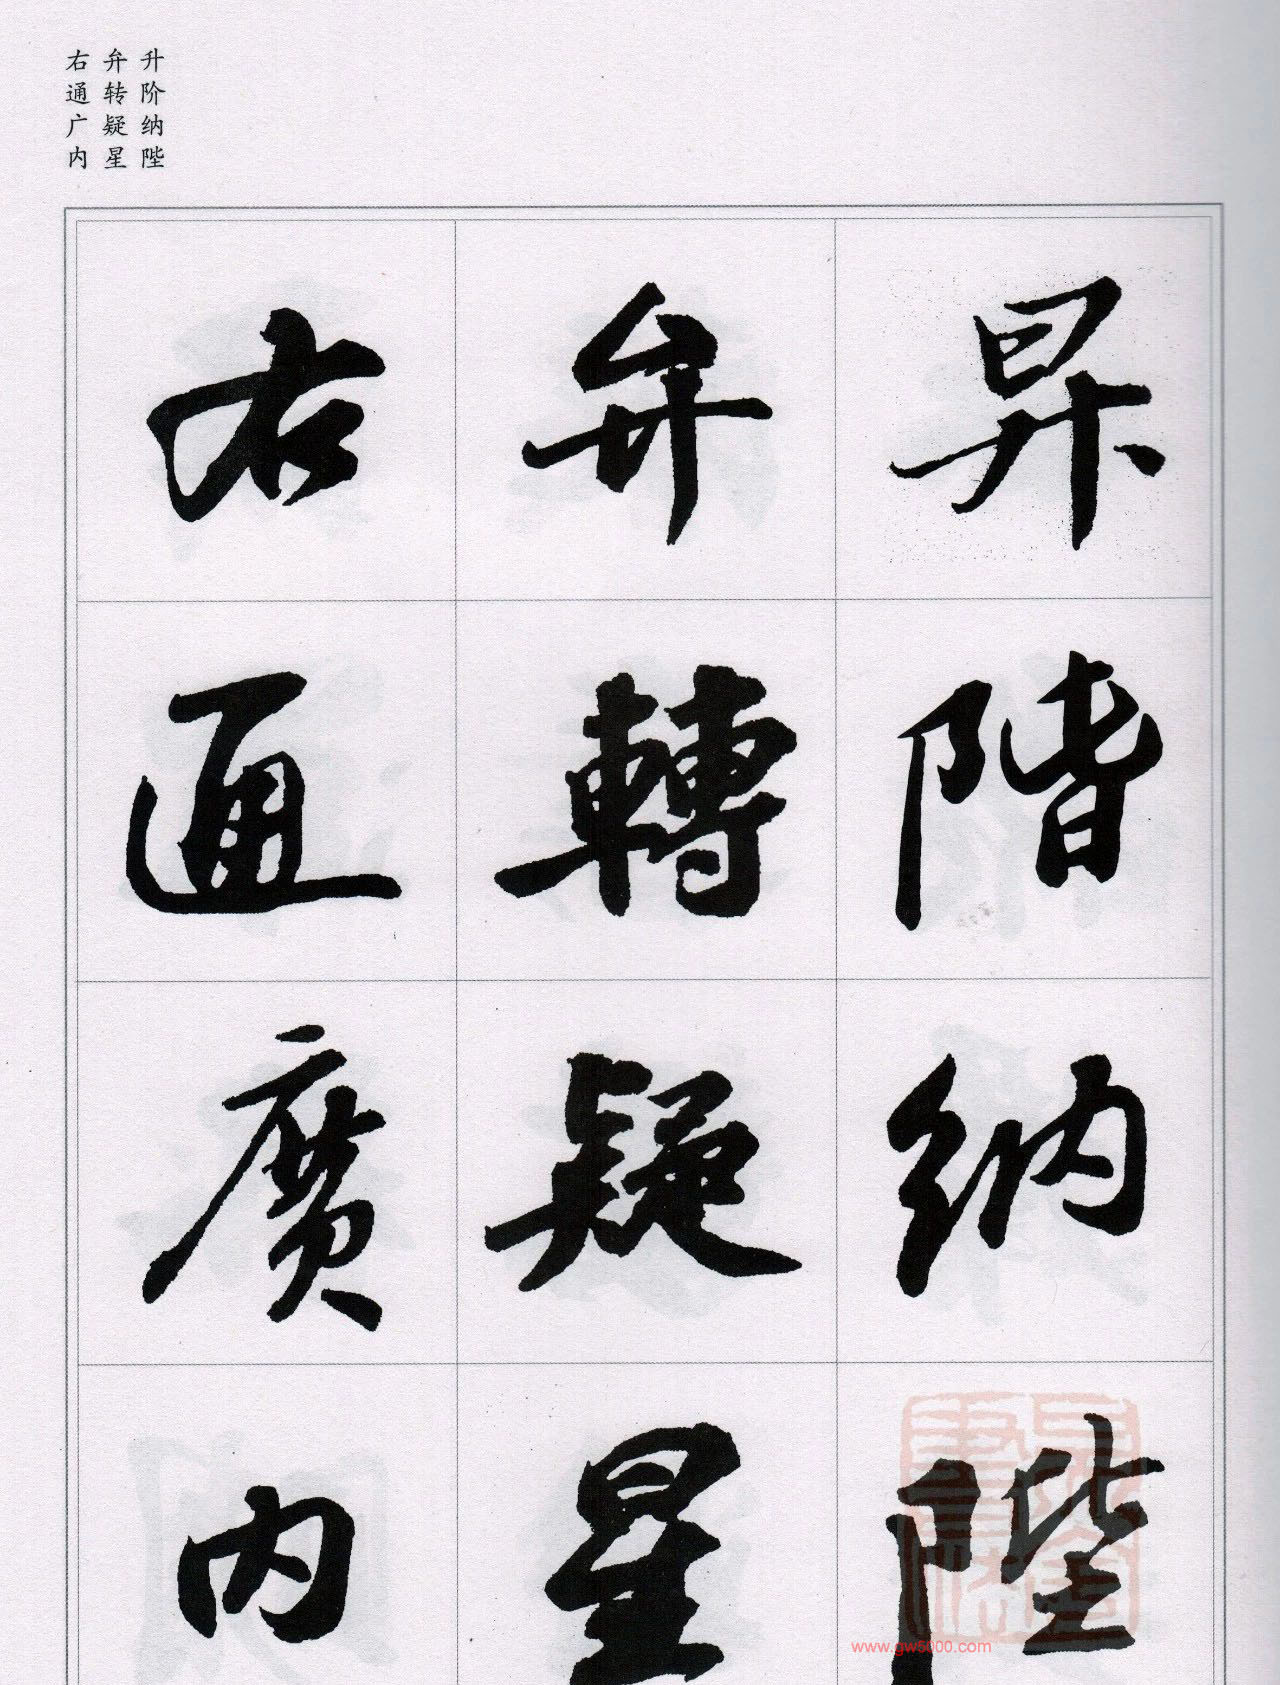 升阶纳陛
弁转疑星
右通广内
昇階納陛
弁轉疑星
右通廣内
www.gw5000.com